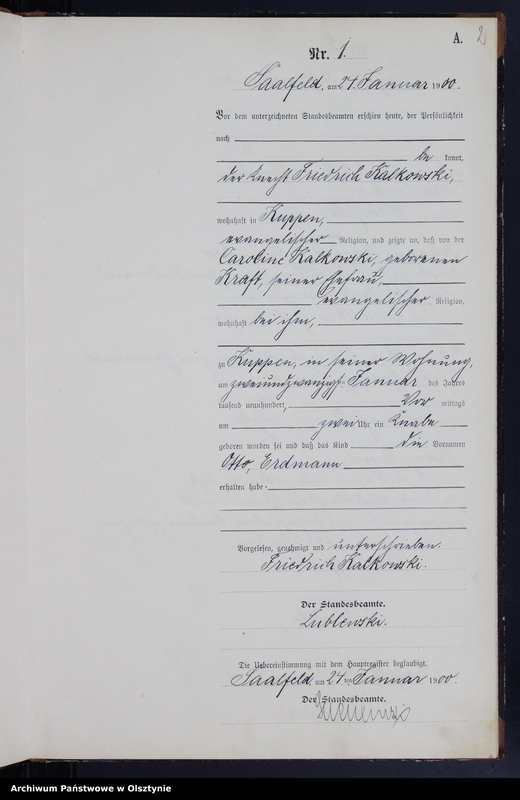 A. 2
Nr. 1.
Saalfeld, am 24. Januar 1900.
Vor dem unterzeichneten Standesbeamten erschien heute, der Persönlichkeit
nach
be kannt,
der Knecht Friedrich Kalkowski,
wohnhaft in Kuppen,
evangelischer Religion, und zeigte an, daß von der
Caroline Kalkowski, geborenen
Kraft, seiner Ehefrau,
evangelischer Religion,
wohnhaft bei ihm,
zu Kuppen, in seiner Wohnung,
am zweiundzwanzigsten Januar des Jahres
tausend neunhundert, Vor mittags
um zwei Uhr ein Knabe
geboren worden sei und daß das Kind die Vornamen
Otto, Erdmann
erhalten habe.
Vorgelesen, genehmigt und unterschrieben.
Friedrich Kalkowski.
Der Standesbeamte.
Lublewski.
Die Uebereinstimmung mit dem Hauptregister beglaubigt.
Saalfeld, am 24 ten Januar 1900.
Der Standesbeamte.
Archiwum Państwowe w Olsztynie